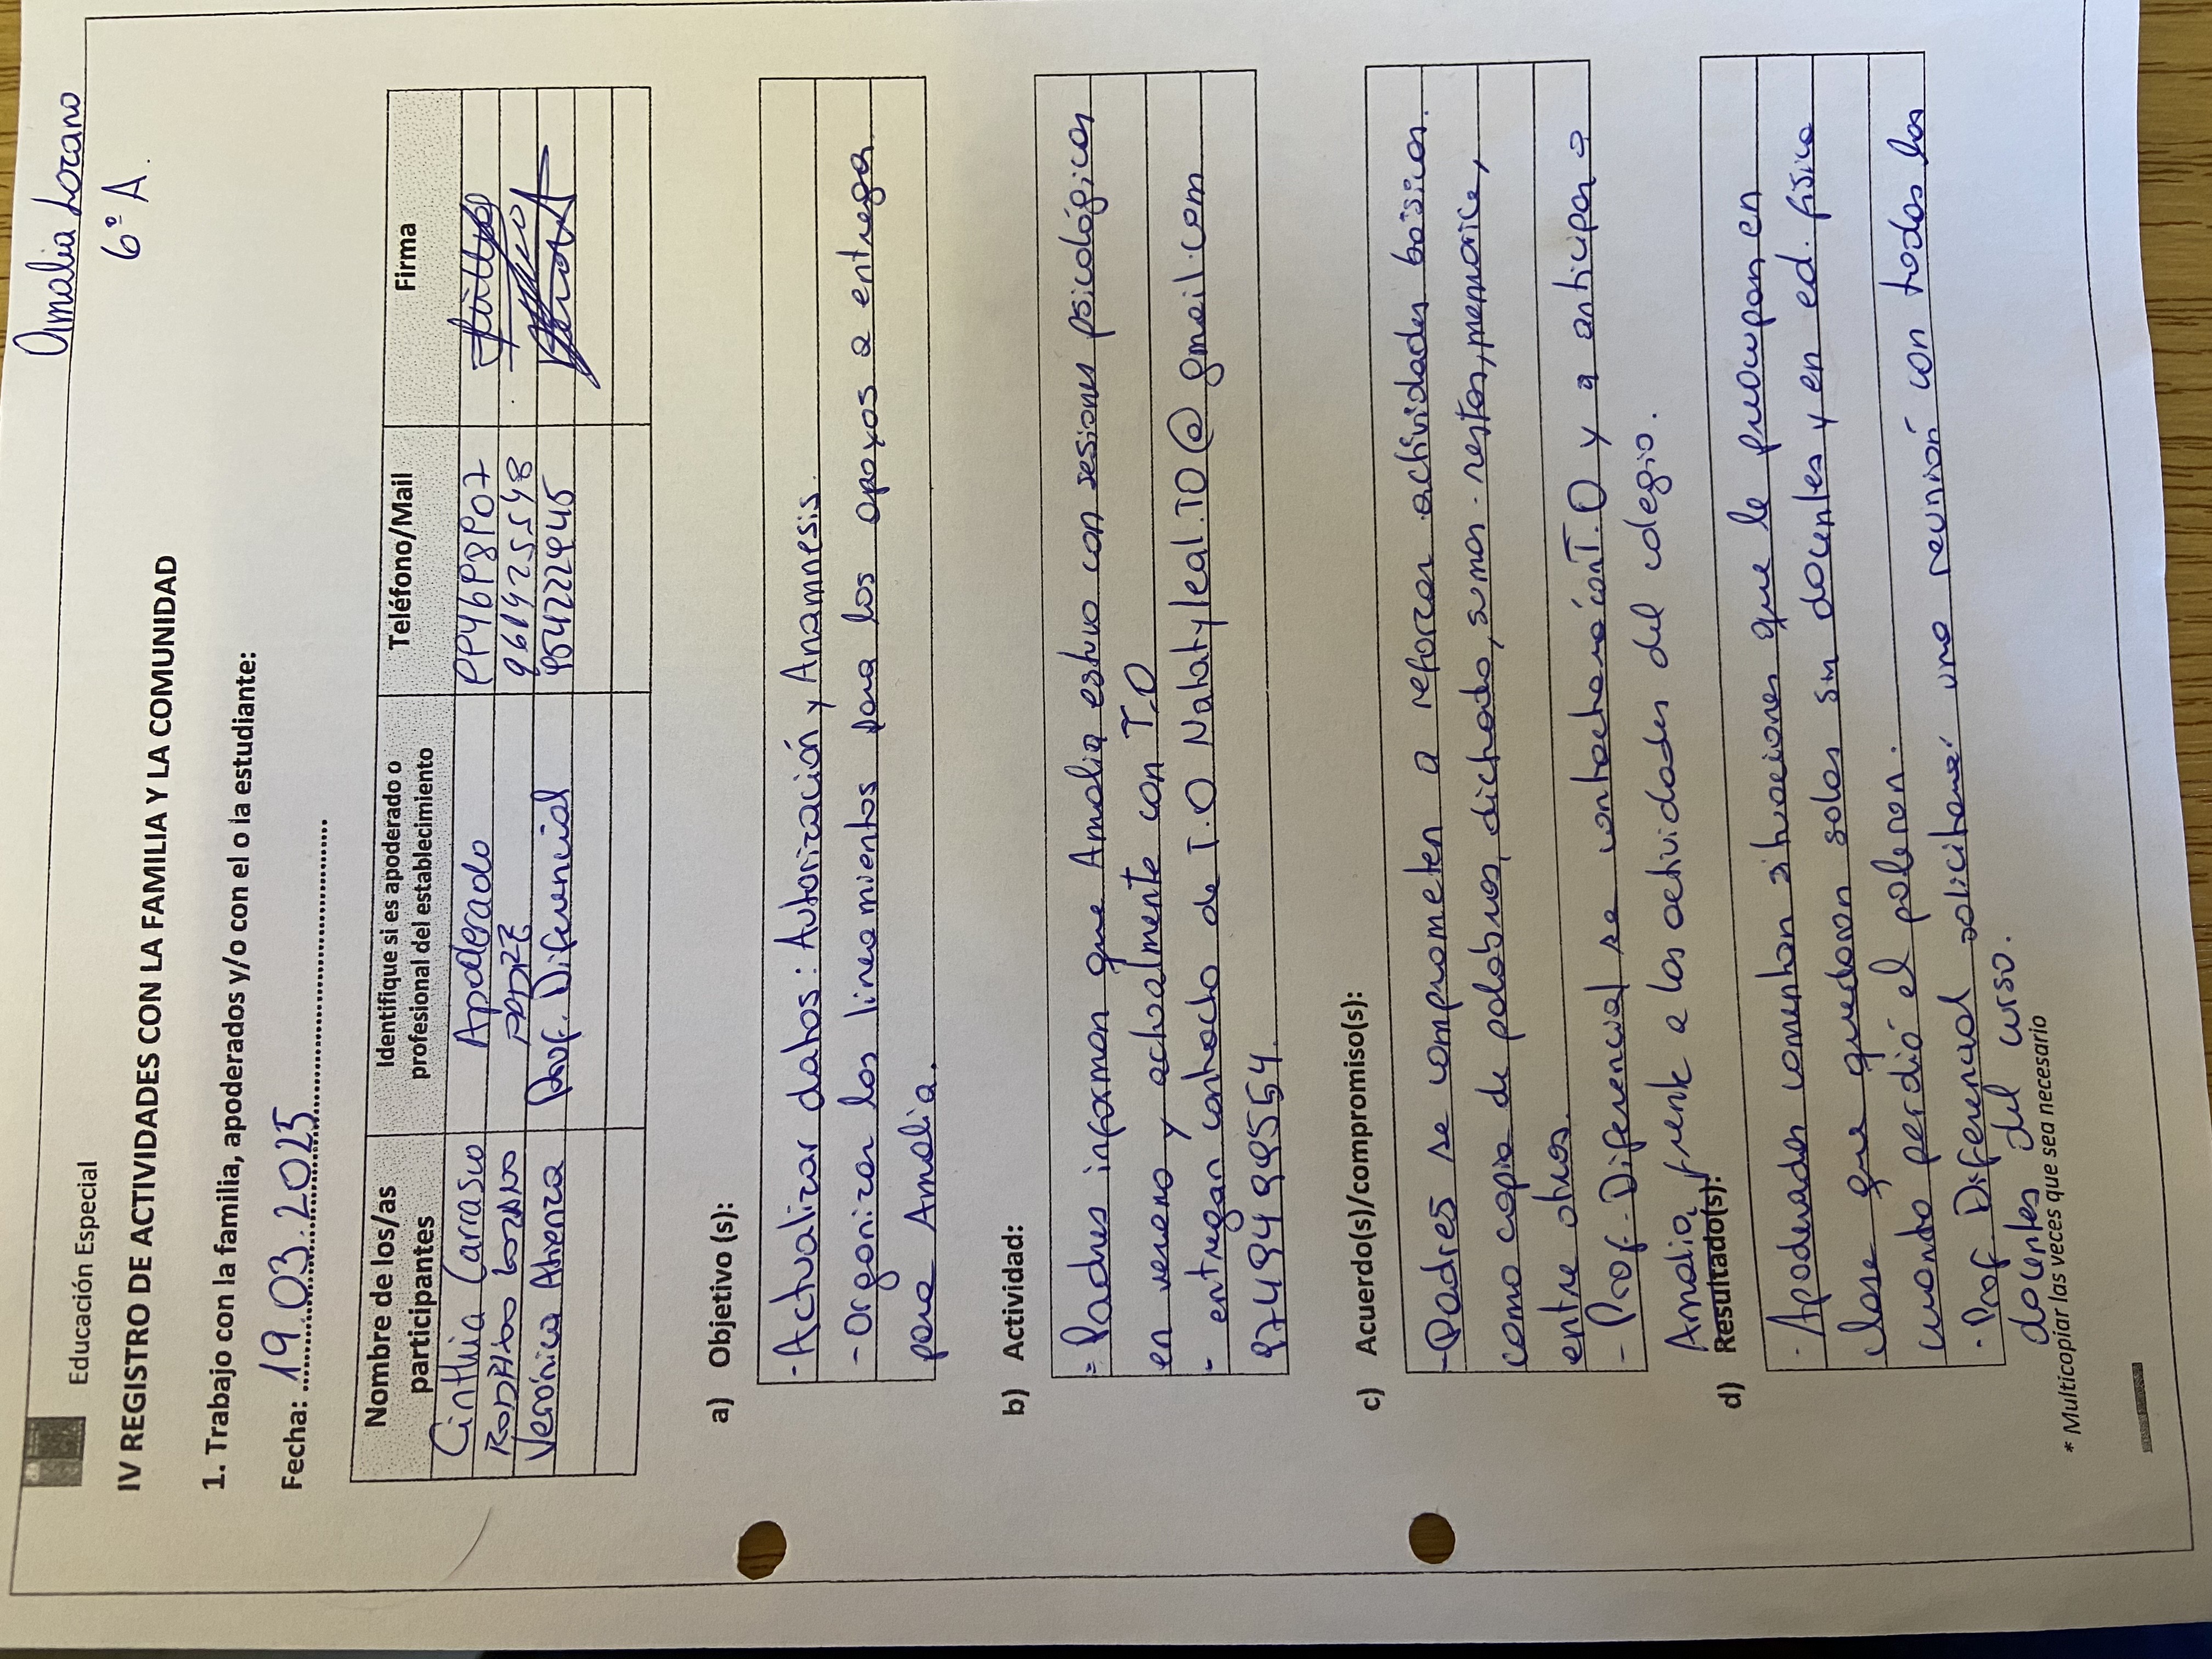 Amalia Lozano
6° A.
Educación Especial
IV REGISTRO DE ACTIVIDADES CON LA FAMILIA Y LA COMUNIDAD
1. Trabajo con la familia, apoderados y/o con el o la estudiante:
Fecha: 19.03.2025
Nombre de los/as participantes | Identifique si es apoderado o profesional del establecimiento | Teléfono/Mail | Firma
Cinthia Carrasco | Apoderado
Rodrigo Lozano | PADRE | 961925548
Verónica Atienza | Prof. Diferencial | 954222945
a) Objetivo (s):
- Actualizar datos: Autorización y Anamnesis.
- Organizar los lineamientos para los apoyos a entregar
para Amalia.
b) Actividad:
- Padres informan que Amalia estuvo con sesiones psicológicas
en verano y actualmente con T.O
- entregan contacto de T.O Natalyleal.TO@gmail.com
974949554.
c) Acuerdo(s)/compromiso(s):
- Padres se comprometen a reforzar actividades básicas.
como copia de palabras, dictados, sumas - restas, memorice,
entre otros.
- Prof. Diferencial se contactará con T.O y a anticipar a
Amalia, frente a las actividades del colegio.
d) Resultado(s):
- Apoderados comentan situaciones que le preocupan en
clase que quedaron solos sin docentes y en ed. física
cuando perdió el poleron.
- Prof Diferencial solicitará una reunión con todos los
docentes del curso.
* Multicopiar las veces que sea necesario